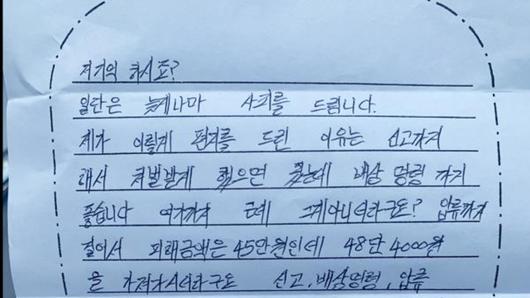 저기억 하시죠?
일단은 늦게나마 사죄를 드립니다.
제가 이렇게 편지를 드린 이유는 신고까지
해서 처벌받게 했으면 됐는데 배상 명령 까지
좋습니다 여기까지 근데 그게아니더라구요? 압류까지
걸어서 피해금액은 45만원인데 48만 4000원
을 가져가시더라구요 신고, 배상명령, 압류